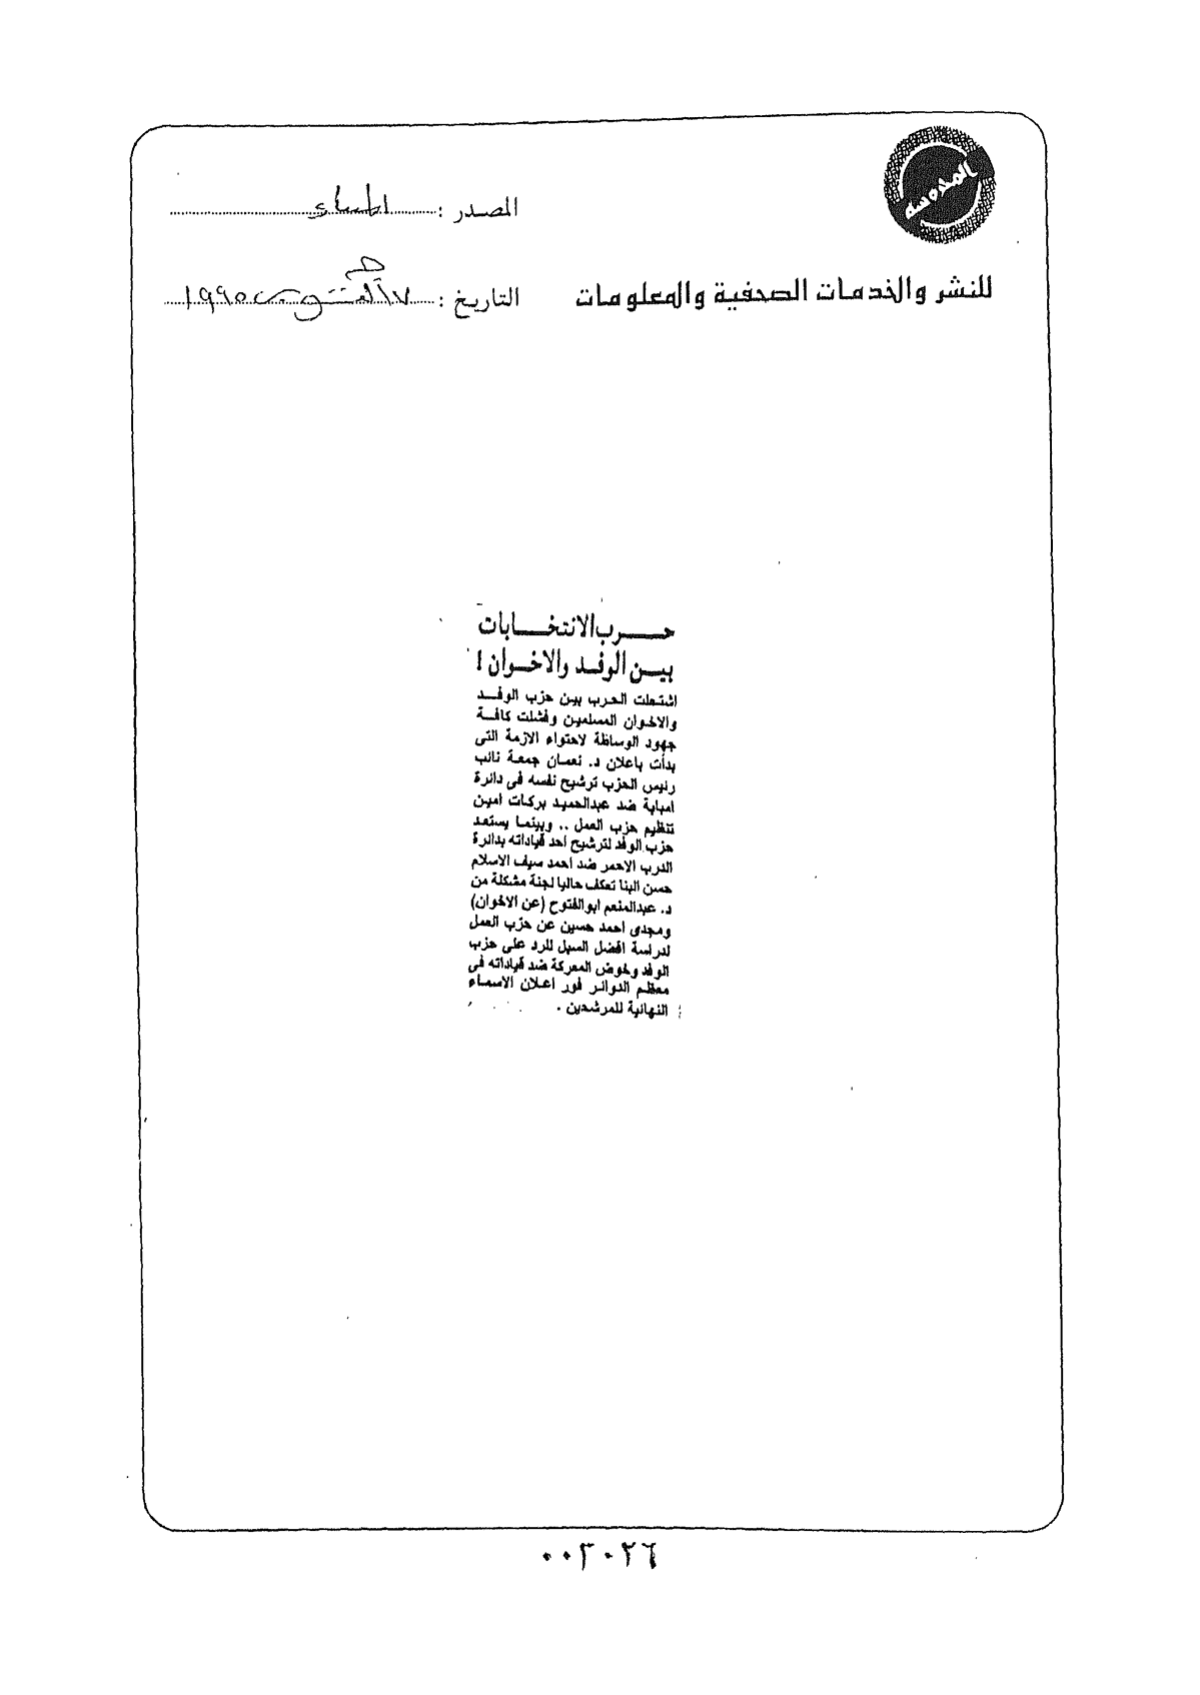 المصدر : المساء
للنشر والخدمات الصحفية والمعلومات
التاريخ : ١٧ أكتوبر ١٩٩٥
حرب الانتخابات
بين الوفد والاخوان !
اشتعلت الحرب بين حزب الوفد
والاخوان المسلمين وفشلت كافة
جهود الوساطة لاحتواء الازمة التى
بدأت باعلان د. نعمان جمعة نائب
رئيس الحزب ترشيح نفسه فى دائرة
امبابة ضد عبدالحميد بركات امين
تنظيم حزب العمل .. وبينما يستعد
حزب الوفد لترشيح احد قياداته بدائرة
الدرب الاحمر ضد احمد سيف الاسلام
حسن البنا تعكف حاليا لجنة مشكلة من
د. عبدالمنعم ابوالفتوح (عن الاخوان)
ومجدى احمد حسين عن حزب العمل
لدراسة افضل السبل للرد على حزب
الوفد وخوض المعركة ضد قياداته فى
معظم الدوائر فور اعلان الاسماء
النهائية للمرشحين .